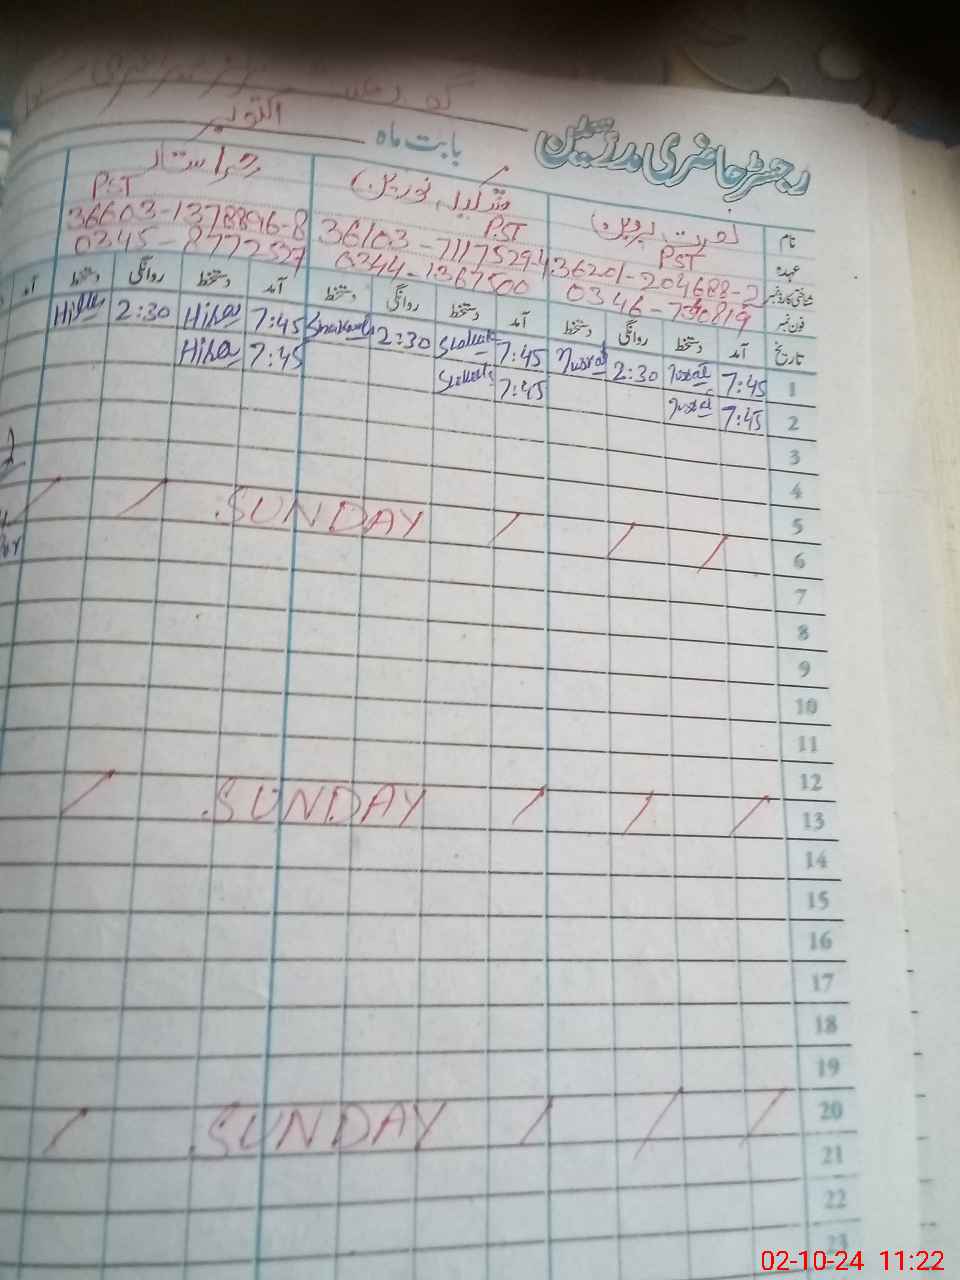 رجسٹر حاضری مدرسین بابت ماہ اکتوبر
نام نصرت پروین شرکیلہ نورین حرا ستار
عہدہ PST PST PST
شناختی کارڈ نمبر 36201-204688-2 36103-7117529-4 36603-1378896-8
فون نمبر 0346-7 0344-1367500 0345-8772527
تاریخ آمد دستخط روانگی دستخط آمد دستخط روانگی دستخط آمد دستخط روانگی دستخط آمد
1 7:45 Nusrat 2:30 Nusrat 7:45 2:30 7:45 Hira 2:30 Hira
2 7:45 Nusrat 7:45 7:45 Hira
3
4
5
6 SUNDAY
7
8
9
10
11
12
13 SUNDAY
14
15
16
17
18
19
20 SUNDAY
21
22
23
02-10-24 11:22